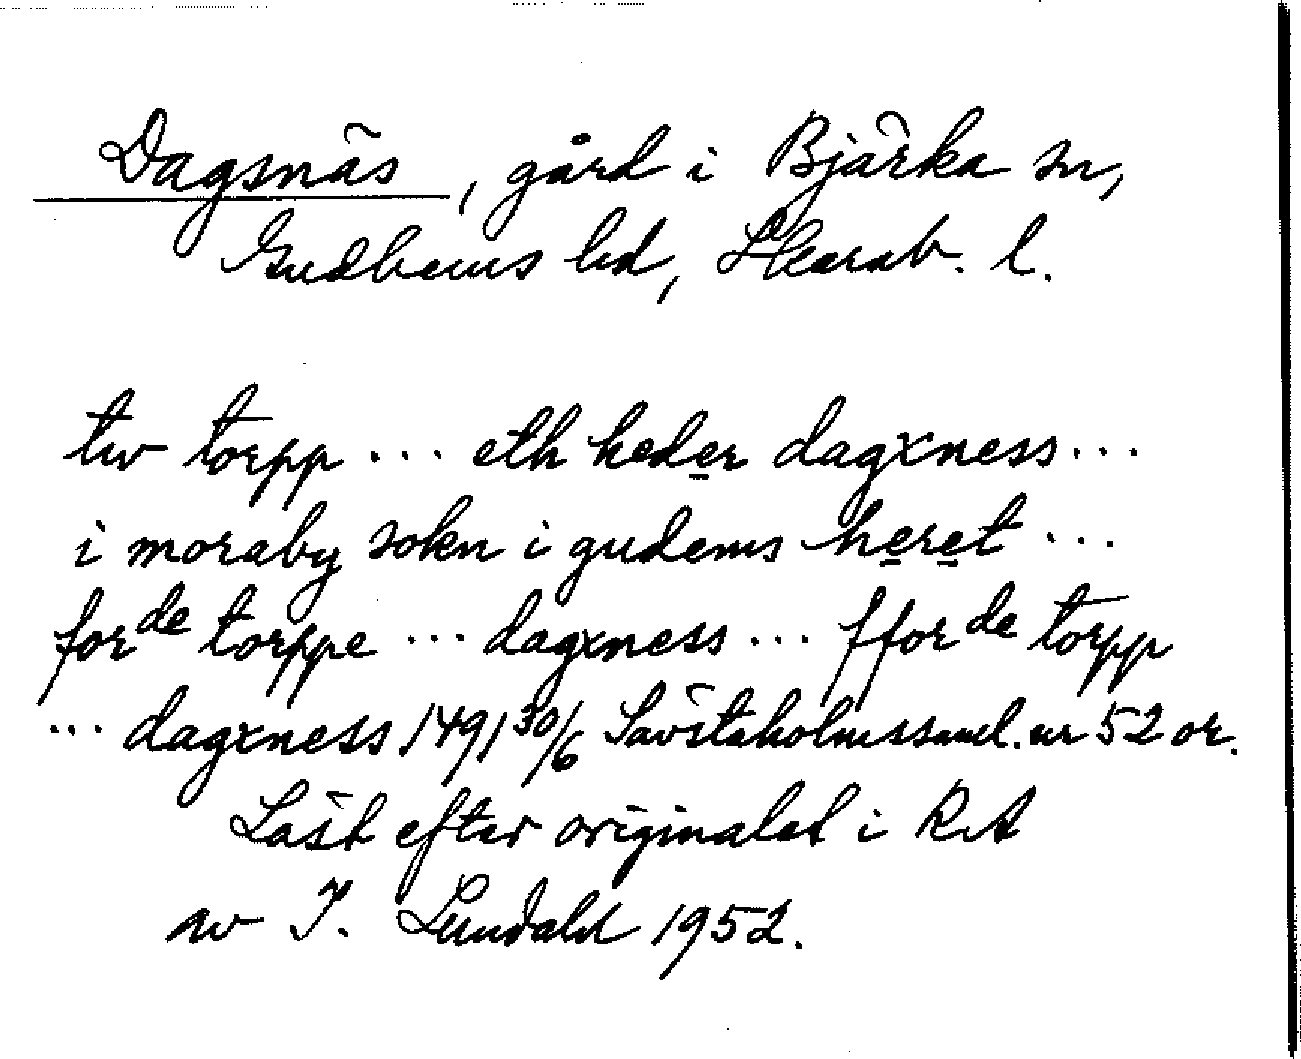 Dagsnäs, gård i Bjärka sn,
Gudhems hd, Skarab. l.
tw torpp ... eth heder dagxness ...
i moraby sokn i gudems heret ...
forde torppe ... dagxness ... fforde torpp
... dagxness 1491 30/6 Sävstaholmssaml. nr 52 or.
Läst efter originalet i RA
av I. Lundahl 1952.